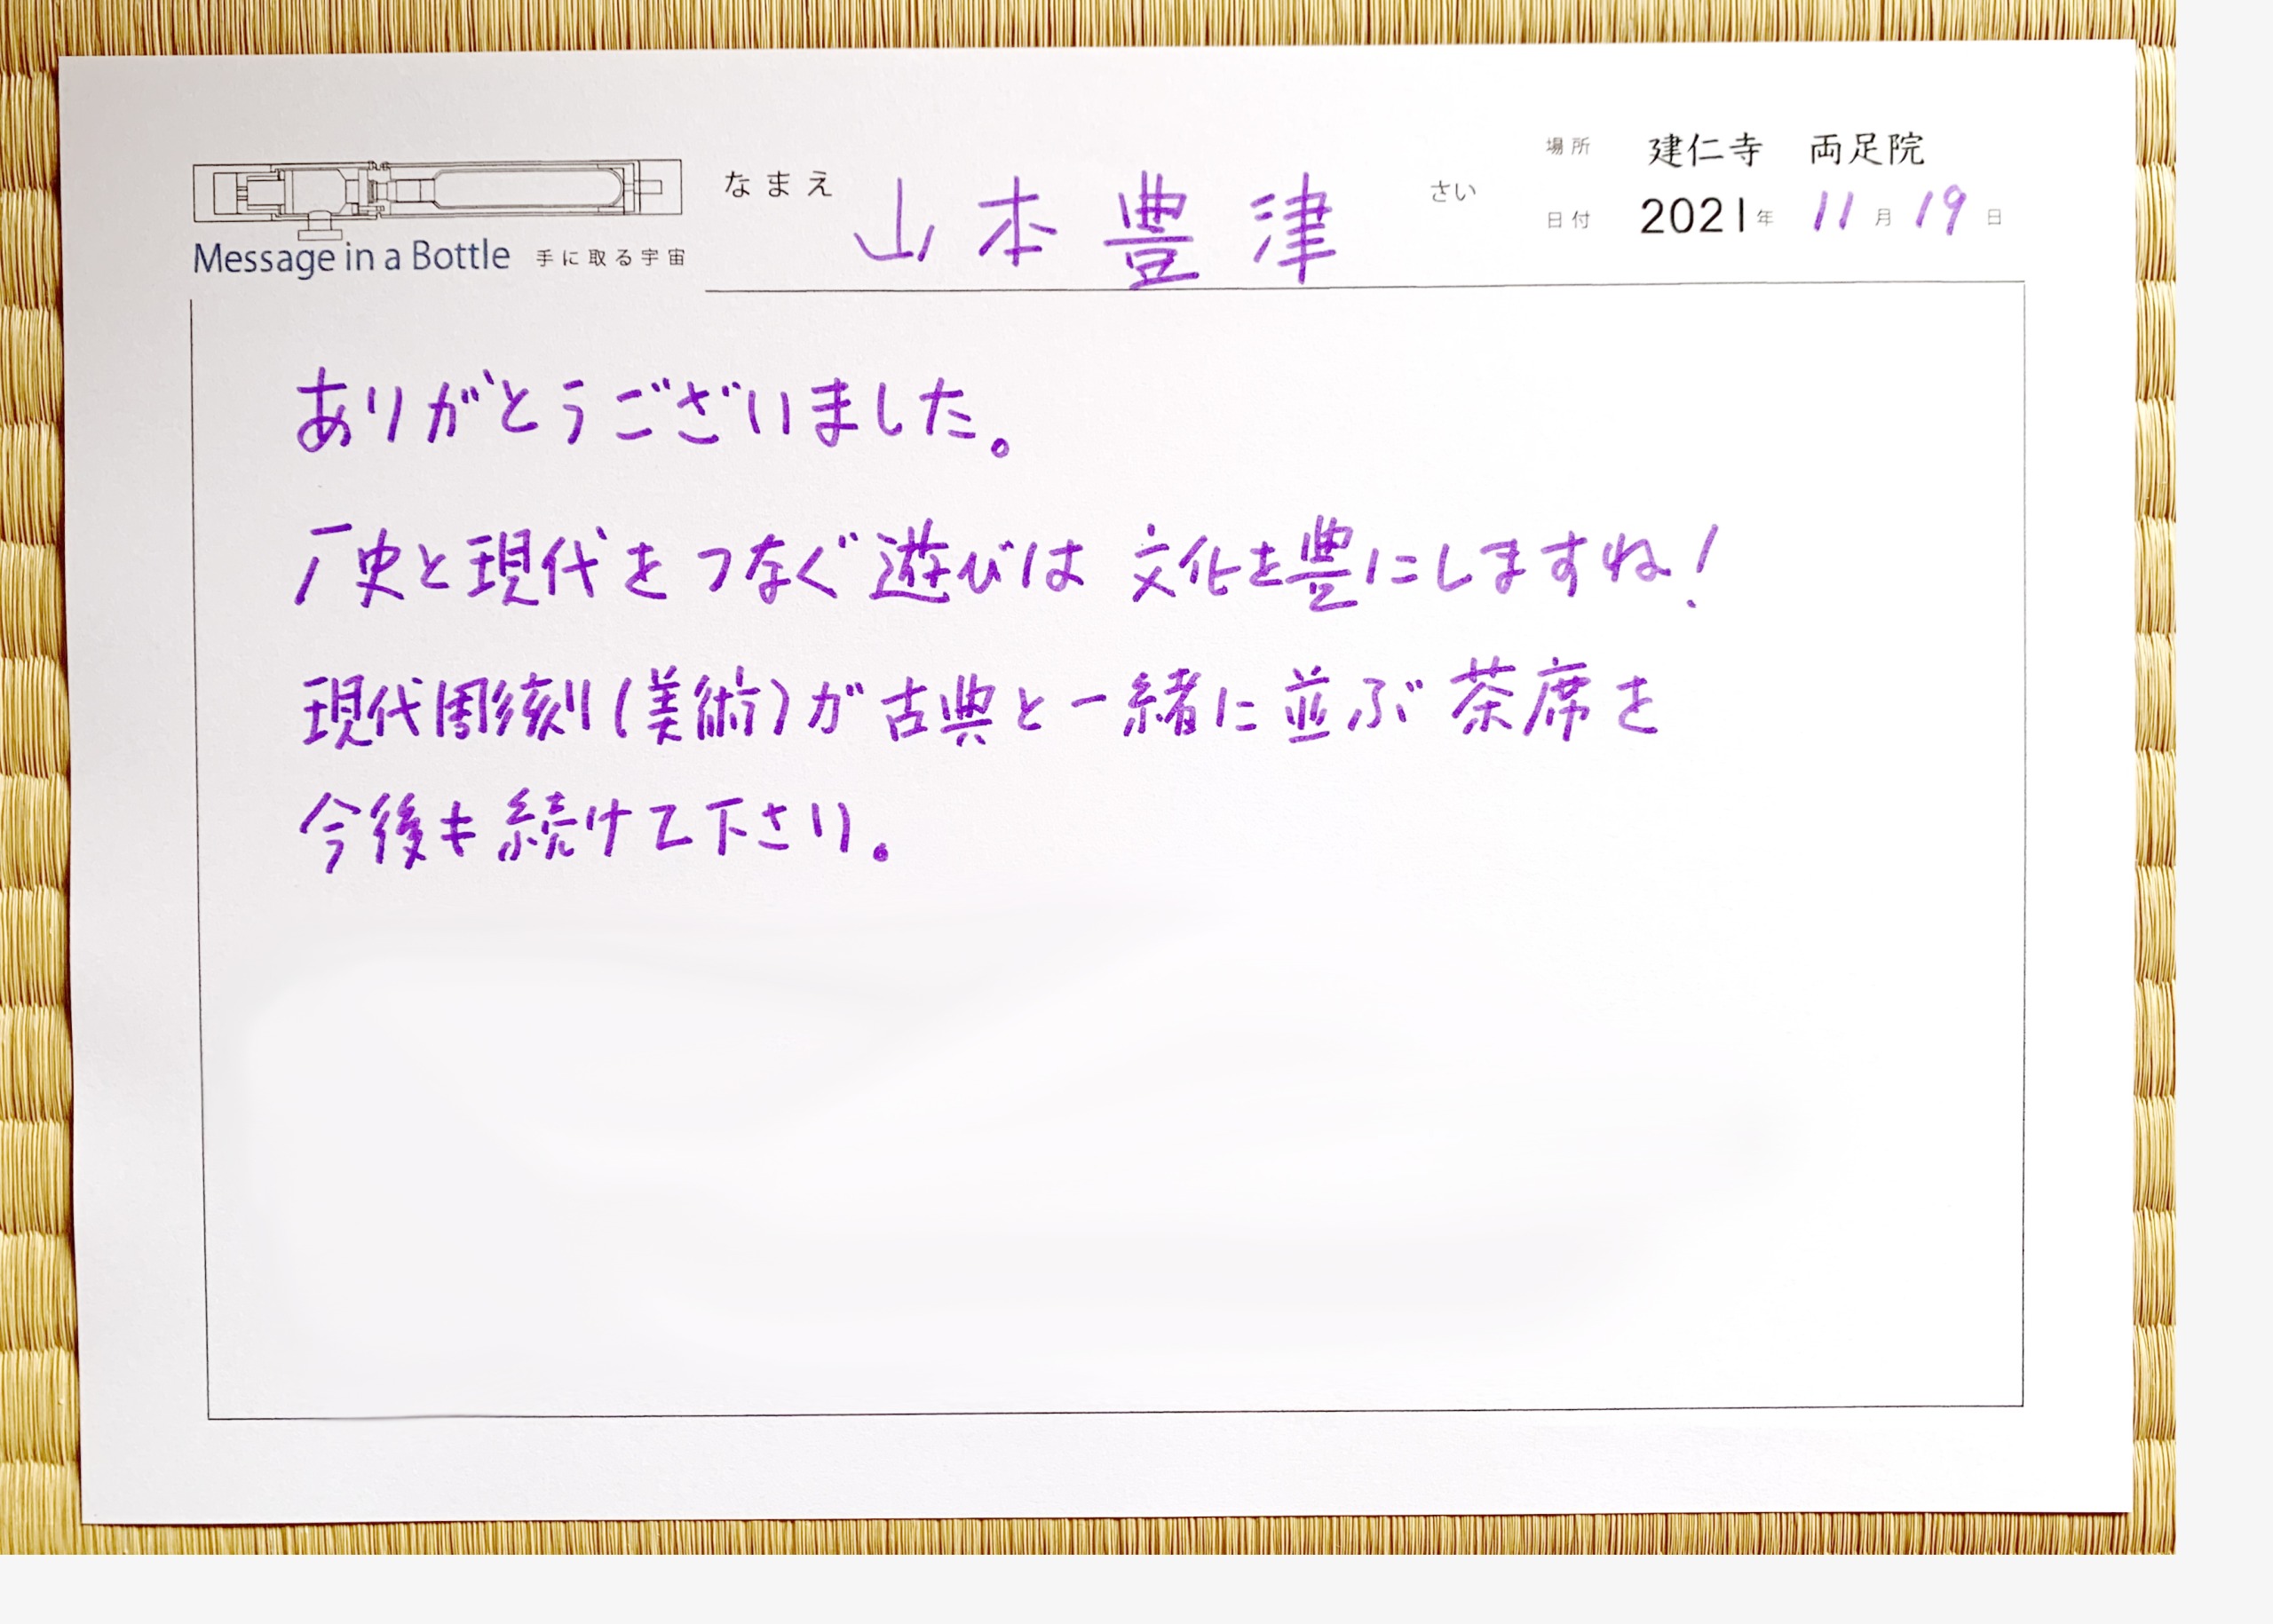 なまえ 山本豊津 さい
場所 建仁寺 両足院
日付 2021年 11月 19日
Message in a Bottle 手に取る宇宙
ありがとうございました。
厂史と現代をつなぐ遊びは 文化を豊にしますね!
現代彫刻(美術)が古典と一緒に並ぶ茶席を
今後も続けて下さい。